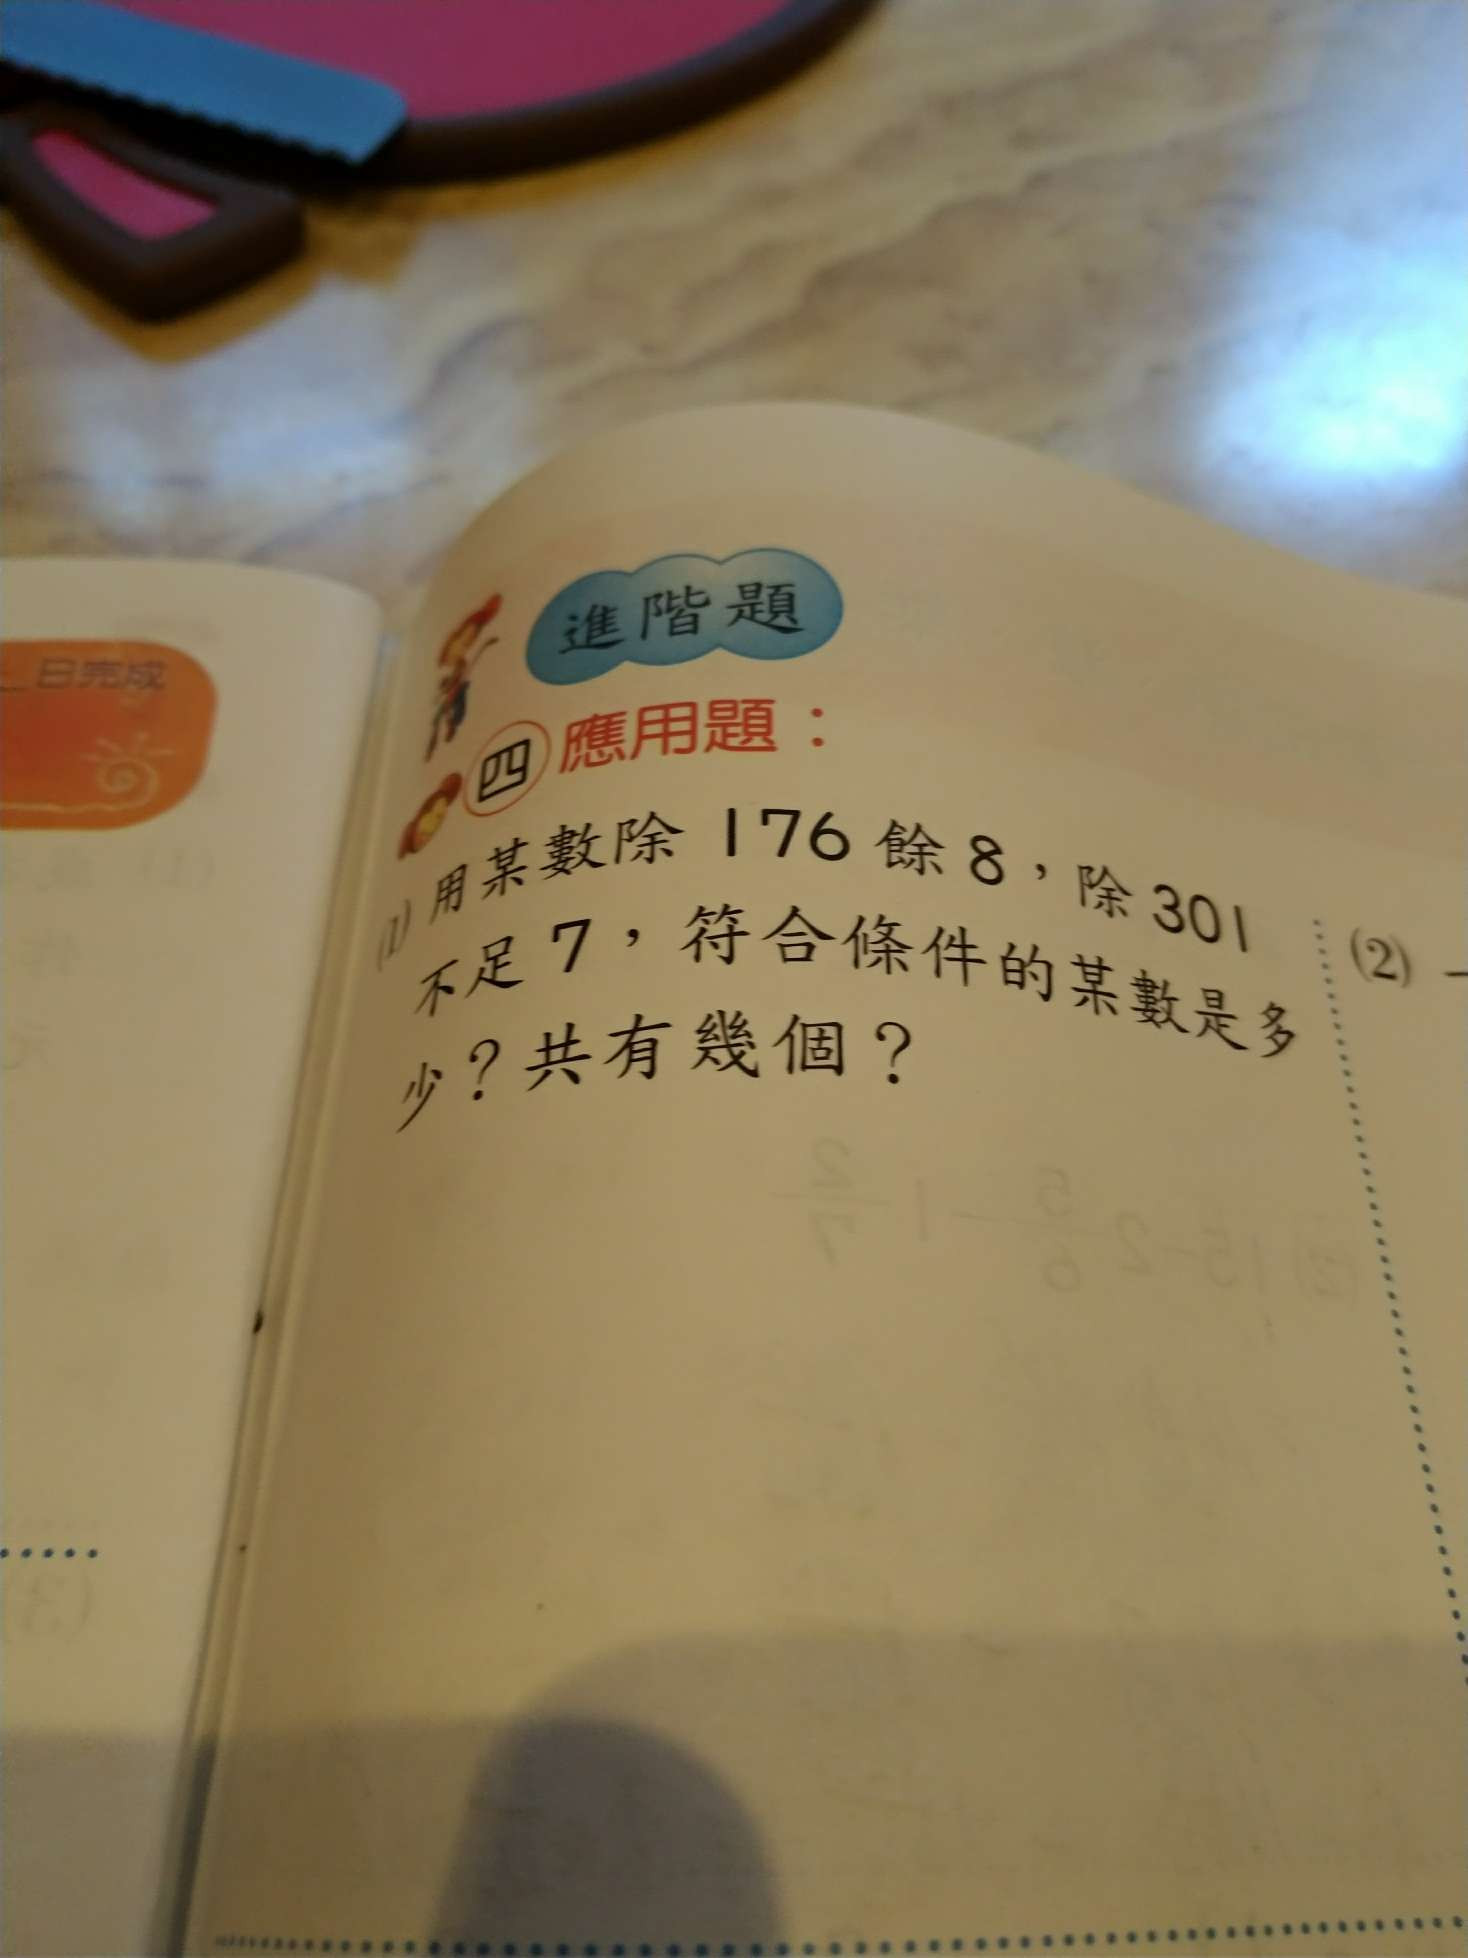 日完成
進階題
四 應用題：
(1) 用某數除 176 餘 8，除 301
不足 7，符合條件的某數是多
少？共有幾個？
(2)